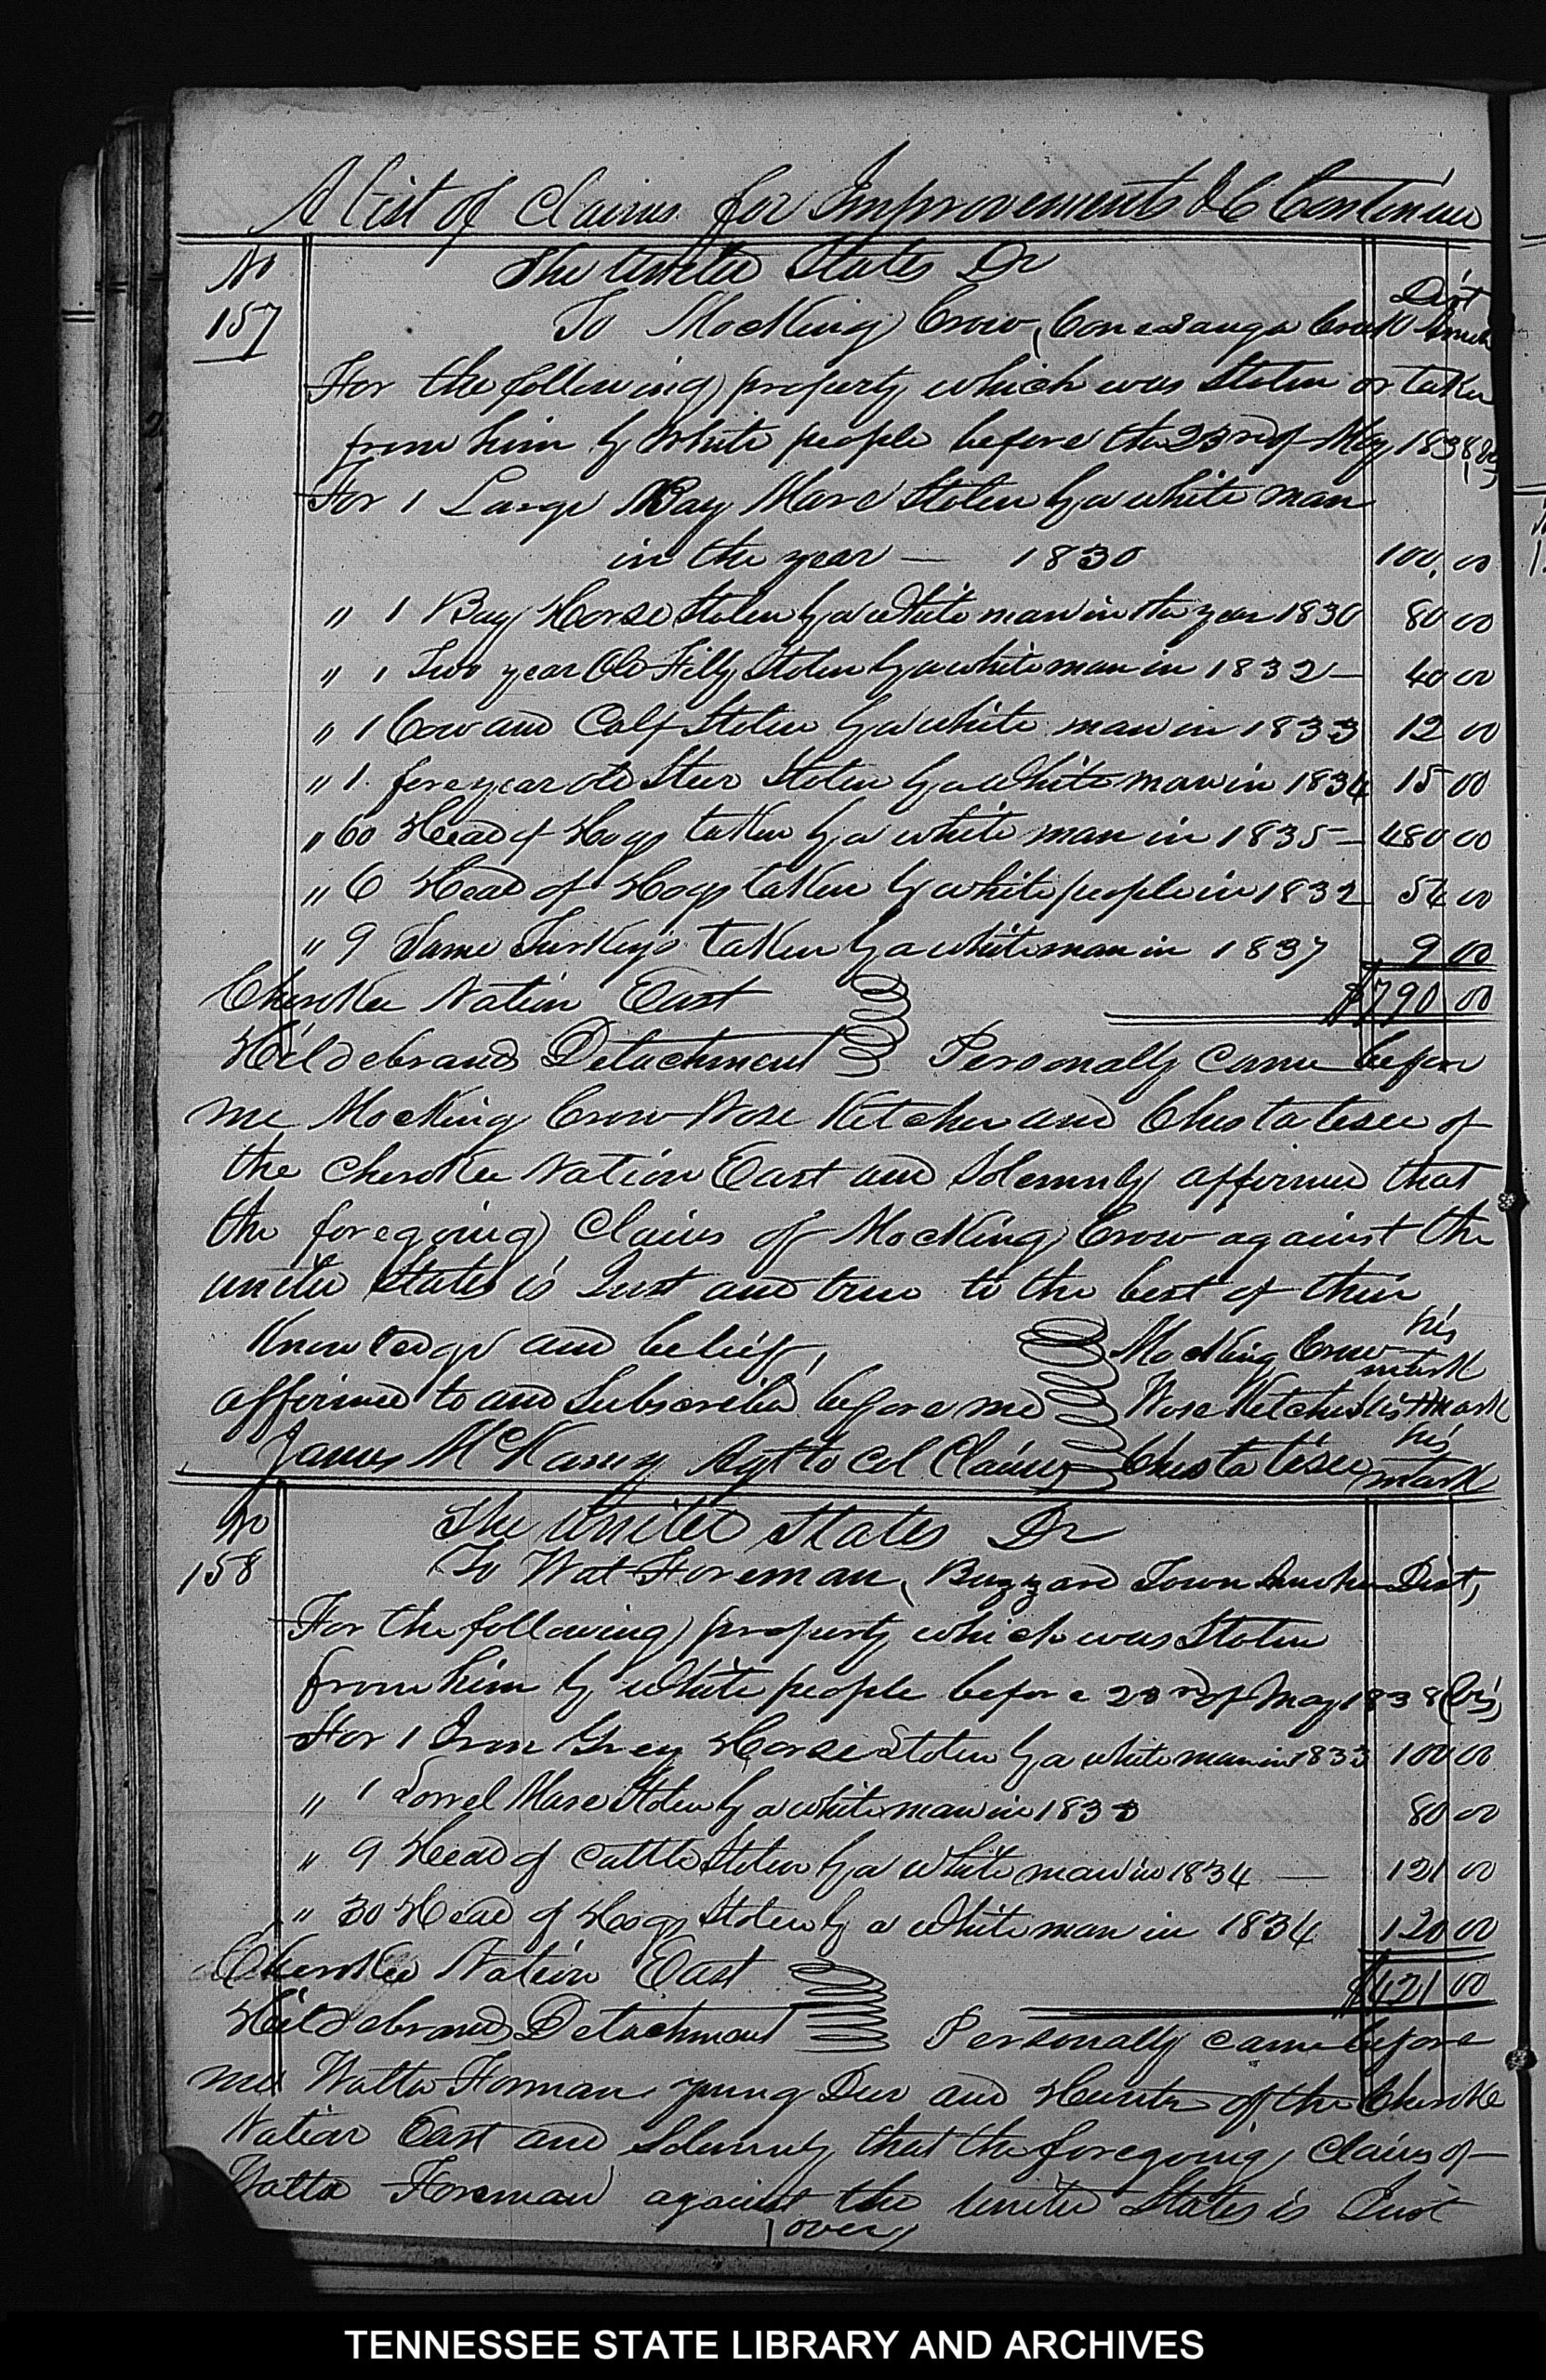 A List of Claims for Improvements &C Continued
No The United States Dr
157 To Mocking Crow, Conasauga Creek Dist
For the following property which was Stolen or taken
from him by White people before the 23rd of May 1838, viz,
For 1 Large Bay Mare Stolen by a white man
in the year — 1830 100.00
" 1 Bay Horse Stolen by a White man in the year 1830 80 00
" 1 Two year Old Filly Stolen by a white man in 1832 — 40 00
" 1 Cow and Calf Stolen by a white man in 1833 12 00
" 1 year old Steer Stolen by a White man in 1834 15 00
" 60 Head of Hogs taken by a white man in 1835 — 480 00
" 6 Head of Hogs taken by white people in 1832 54 00
" 9 Tame Turkeys taken by a white man in 1837 9 00
Cherokee Nation East $790 00
Hildebrands Detachment Personally came before
me Mocking Crow Nose Ketcher and Chestatesee of
the Cherokee Nation East and Solemnly affirmed that
the foregoing Claims of Mocking Crow against the
United States is Just and true to the best of their
Knowledge and belief,
Mocking Crow his mark
affirmed to and Subscribed before me Nose Ketcher his mark
James McKamy Agt to Col Claims Chestatesee his mark
No The United States Dr
158 To Wat Foreman, Buzzard Town Dist,
For the following property which was Stolen
from him by white people before 23rd of May 1838 (viz)
For 1 Iron Grey Horse Stolen by a white man in 1833 100 00
" 1 Sorrel Mare Stolen by a white man in 1833 80 00
" 9 Head of Cattle Stolen by a White man in 1834 — 121 00
" 30 Head of Hogs Stolen by a White man in 1834 120 00
Cherokee Nation East $421 00
Hildebrands Detachment Personally came before
me Watta Forman young Deer and Hunter of the Cherokee
Nation East and Solemnly that the foregoing Claims of
Watta Foreman against the United States is Just
(over)
TENNESSEE STATE LIBRARY AND ARCHIVES